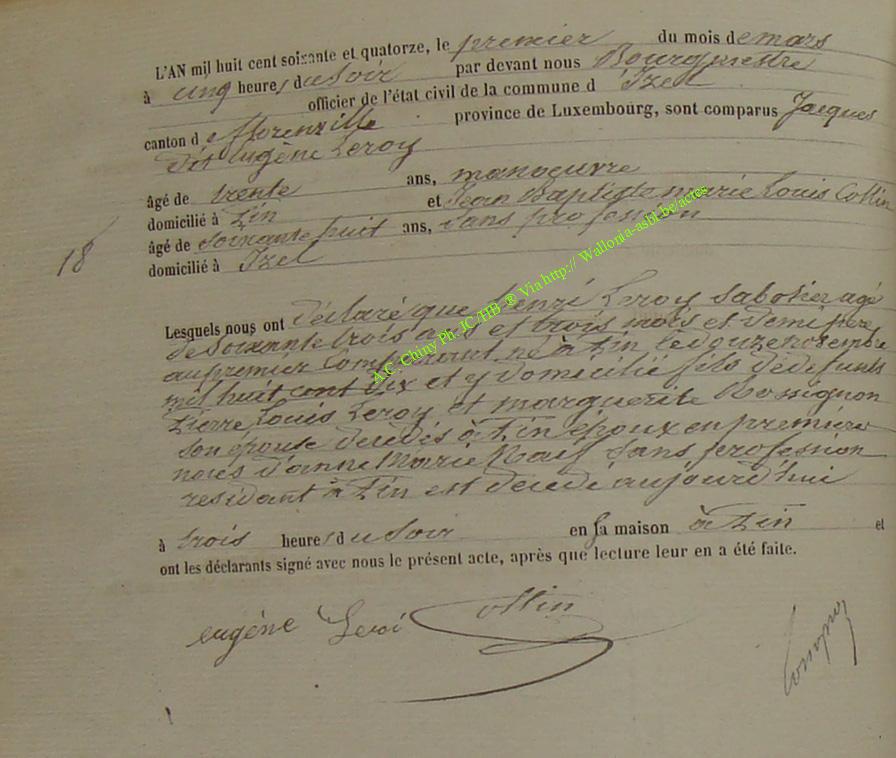 L'AN mil huit cent soixante et quatorze, le premier du mois de mars
à cinq heures du soir par devant nous Bourgmestre
officier de l'état civil de la commune d Izel
canton de fflorenville province de Luxembourg, sont comparus Jacques
dit Eugène Leroy
âgé de trente ans, manoeuvre
domicilié à Pin et Jean Baptiste marie Louis Collin
âgé de Soixante huit ans, Sans profession
domicilié à Izel
18
Lesquels nous ont déclaré que henri Leroy Sabotier agé
de Soixante trois ans et trois mois et demi père
au premier Comparant né à Pin le douze novembre
mil huit cent dix et y domicilié fils de défunts
Pierre Louis Leroy et marguerite Rossignon
Son épouse décédés à Pin époux en première
noces d'anne Marie Sans profession
residant à Pin est décédé aujourd'hui
à trois heures du Soir en Sa maison à Pin et
ont les déclarants signé avec nous le présent acte, après que lecture leur en a été faite.
eugène Leroi Collin
A.C. Chiny Ph. JC/HB ® Via http:// Wallonia-asbl.be/actes